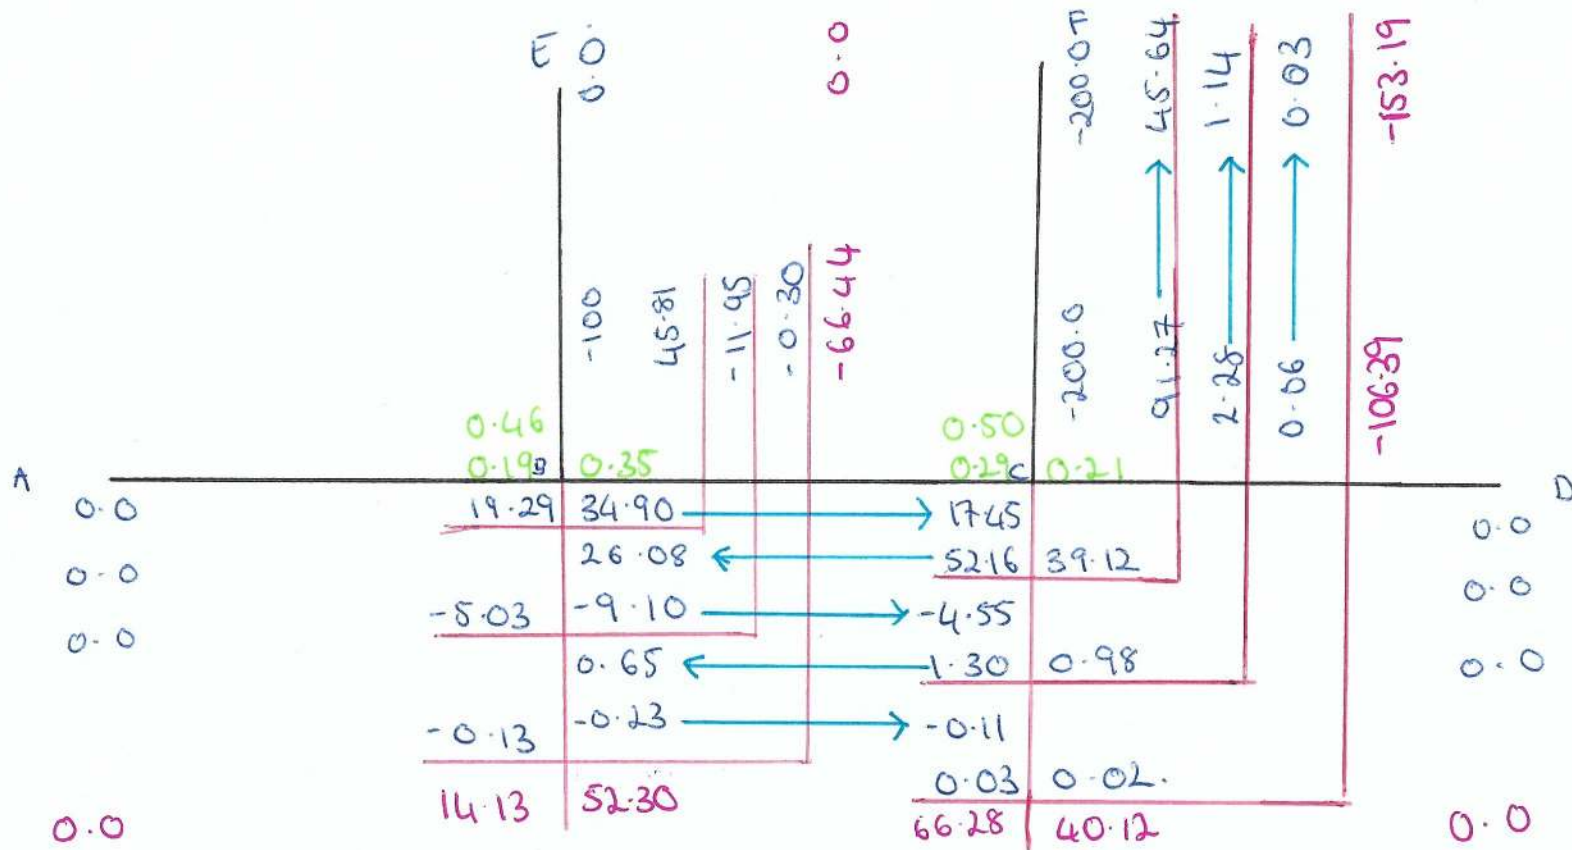 E 0.0
0.0
0.0
0.0
-200.0 F
45.64
1.14
0.03
-153.19
-100
45.81
-11.95
-0.30
-66.44
-200.0
91.27
2.28
0.06
-106.39
0.46
0.50
0.19 B 0.35
0.29 C 0.21
A
D
0.0
19.29 34.90 17.45
0.0
26.08 52.16 39.12
0.0
0.0
-5.03 -9.10 -4.55
0.0
0.65 1.30 0.98
0.0
-0.13 -0.23 -0.11
0.03 0.02.
14.13 52.30
66.28 40.12
0.0
0.0